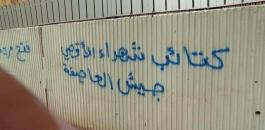 كتائب شهداء الأقصى
جيش العاصفة
فتح